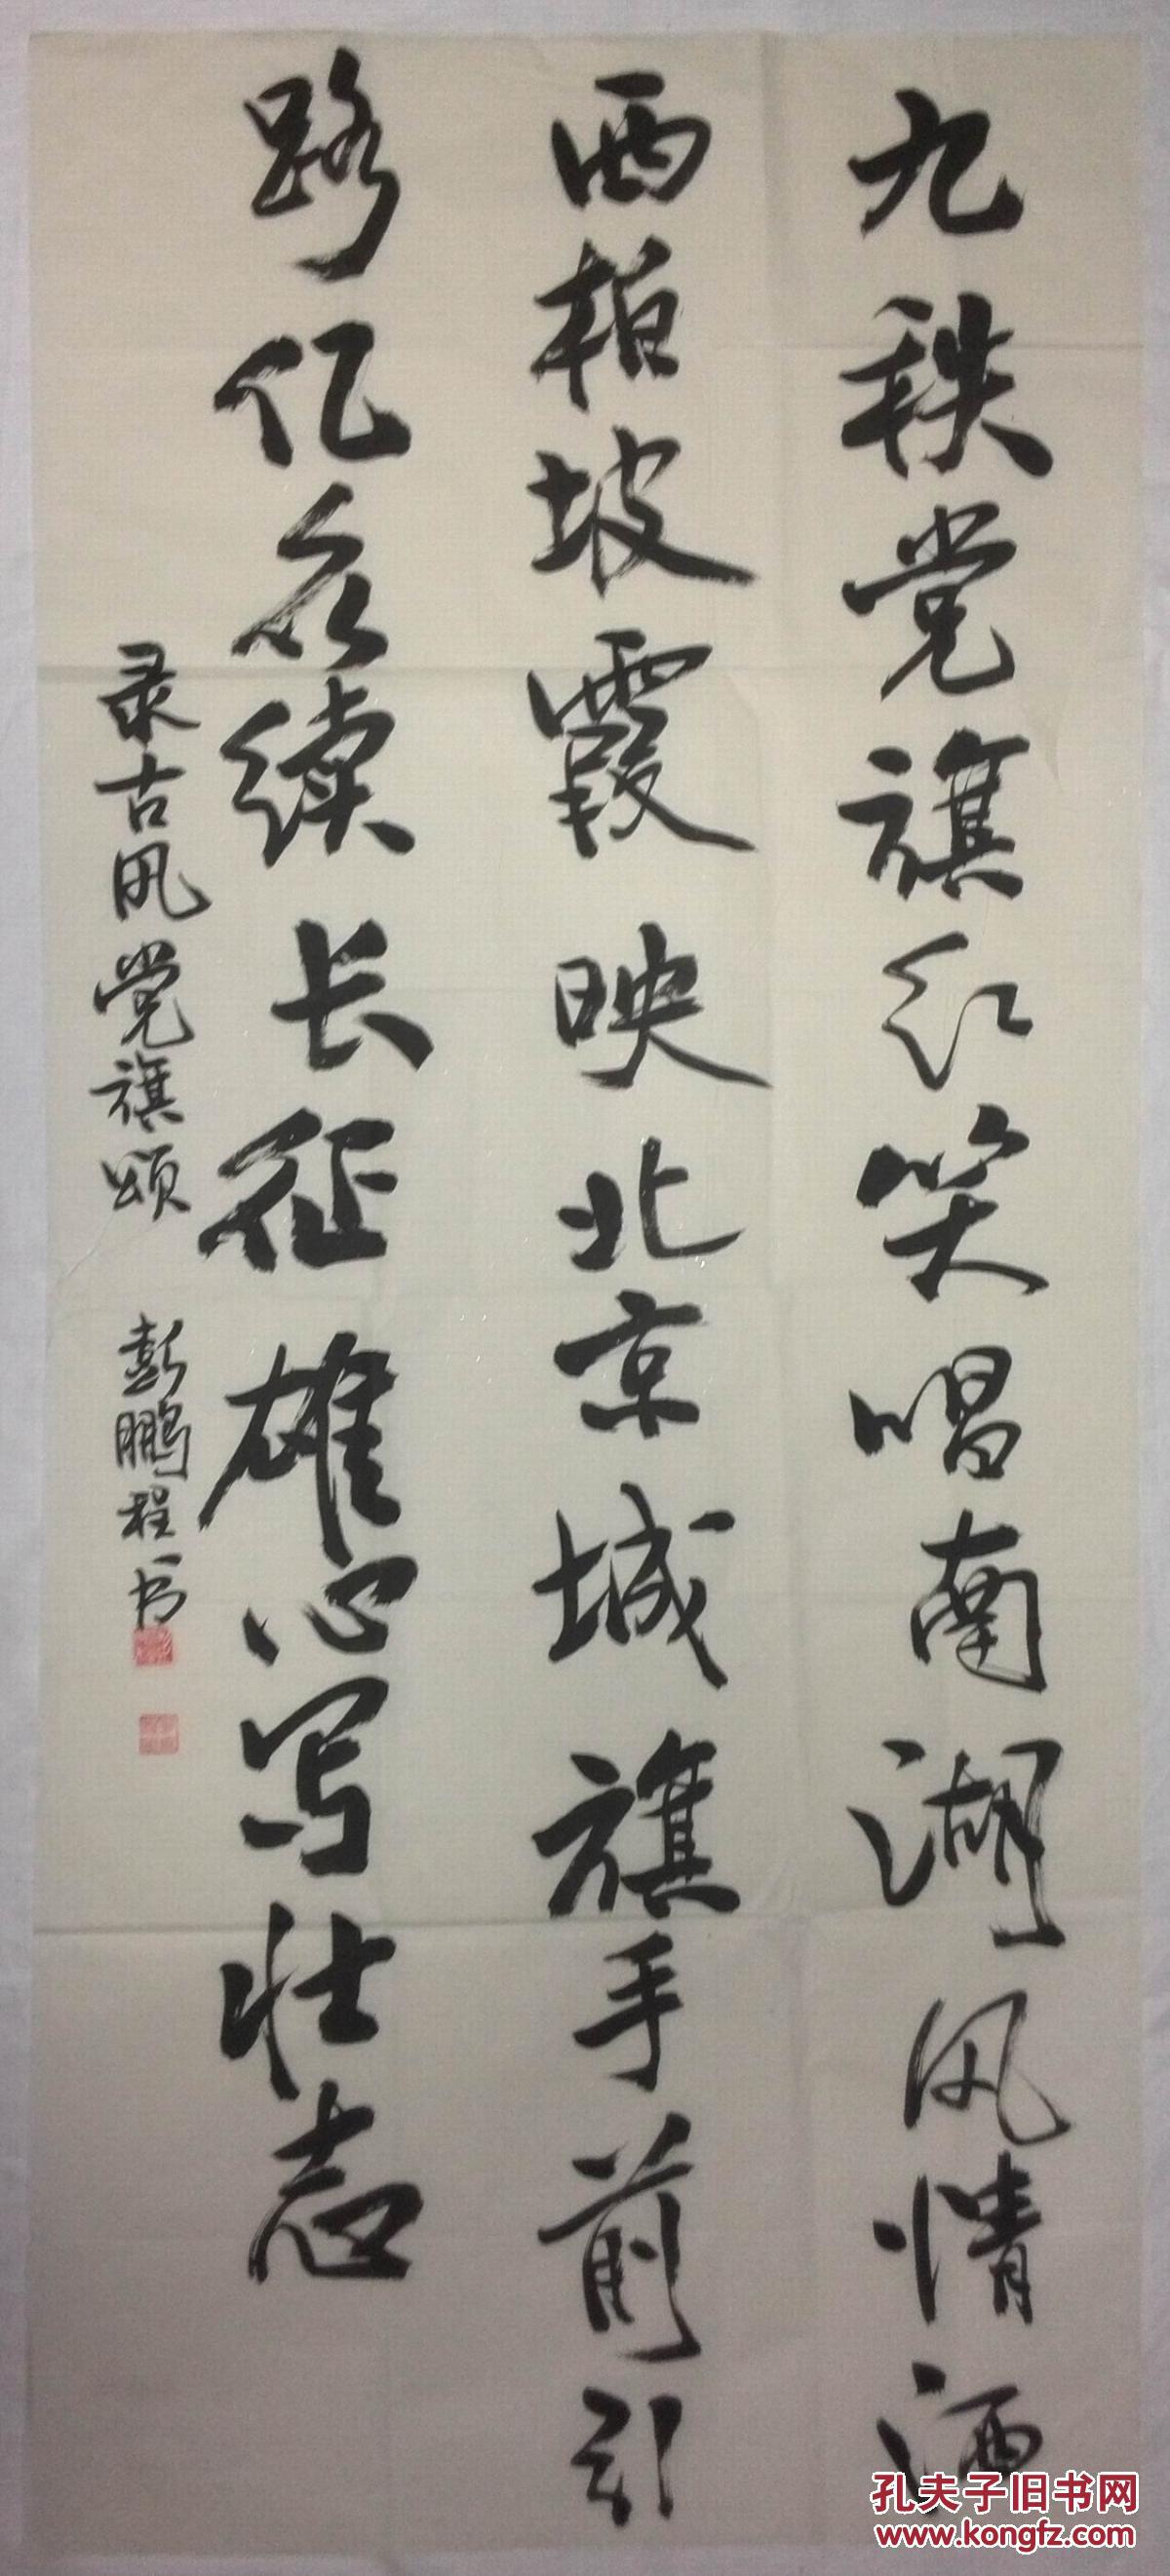 九秩党旗红笑唱南湖风情洒
西柏坡霞映北京城旗手前引
路亿众续长征雄心写壮志
录古风党旗颂 彭鹏程书
孔夫子旧书网
www.kongfz.com